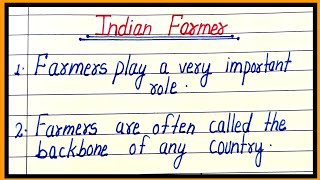 Indian Farmer
1. Farmers play a very important
role.
2. Farmers are often called the
backbone of any country.